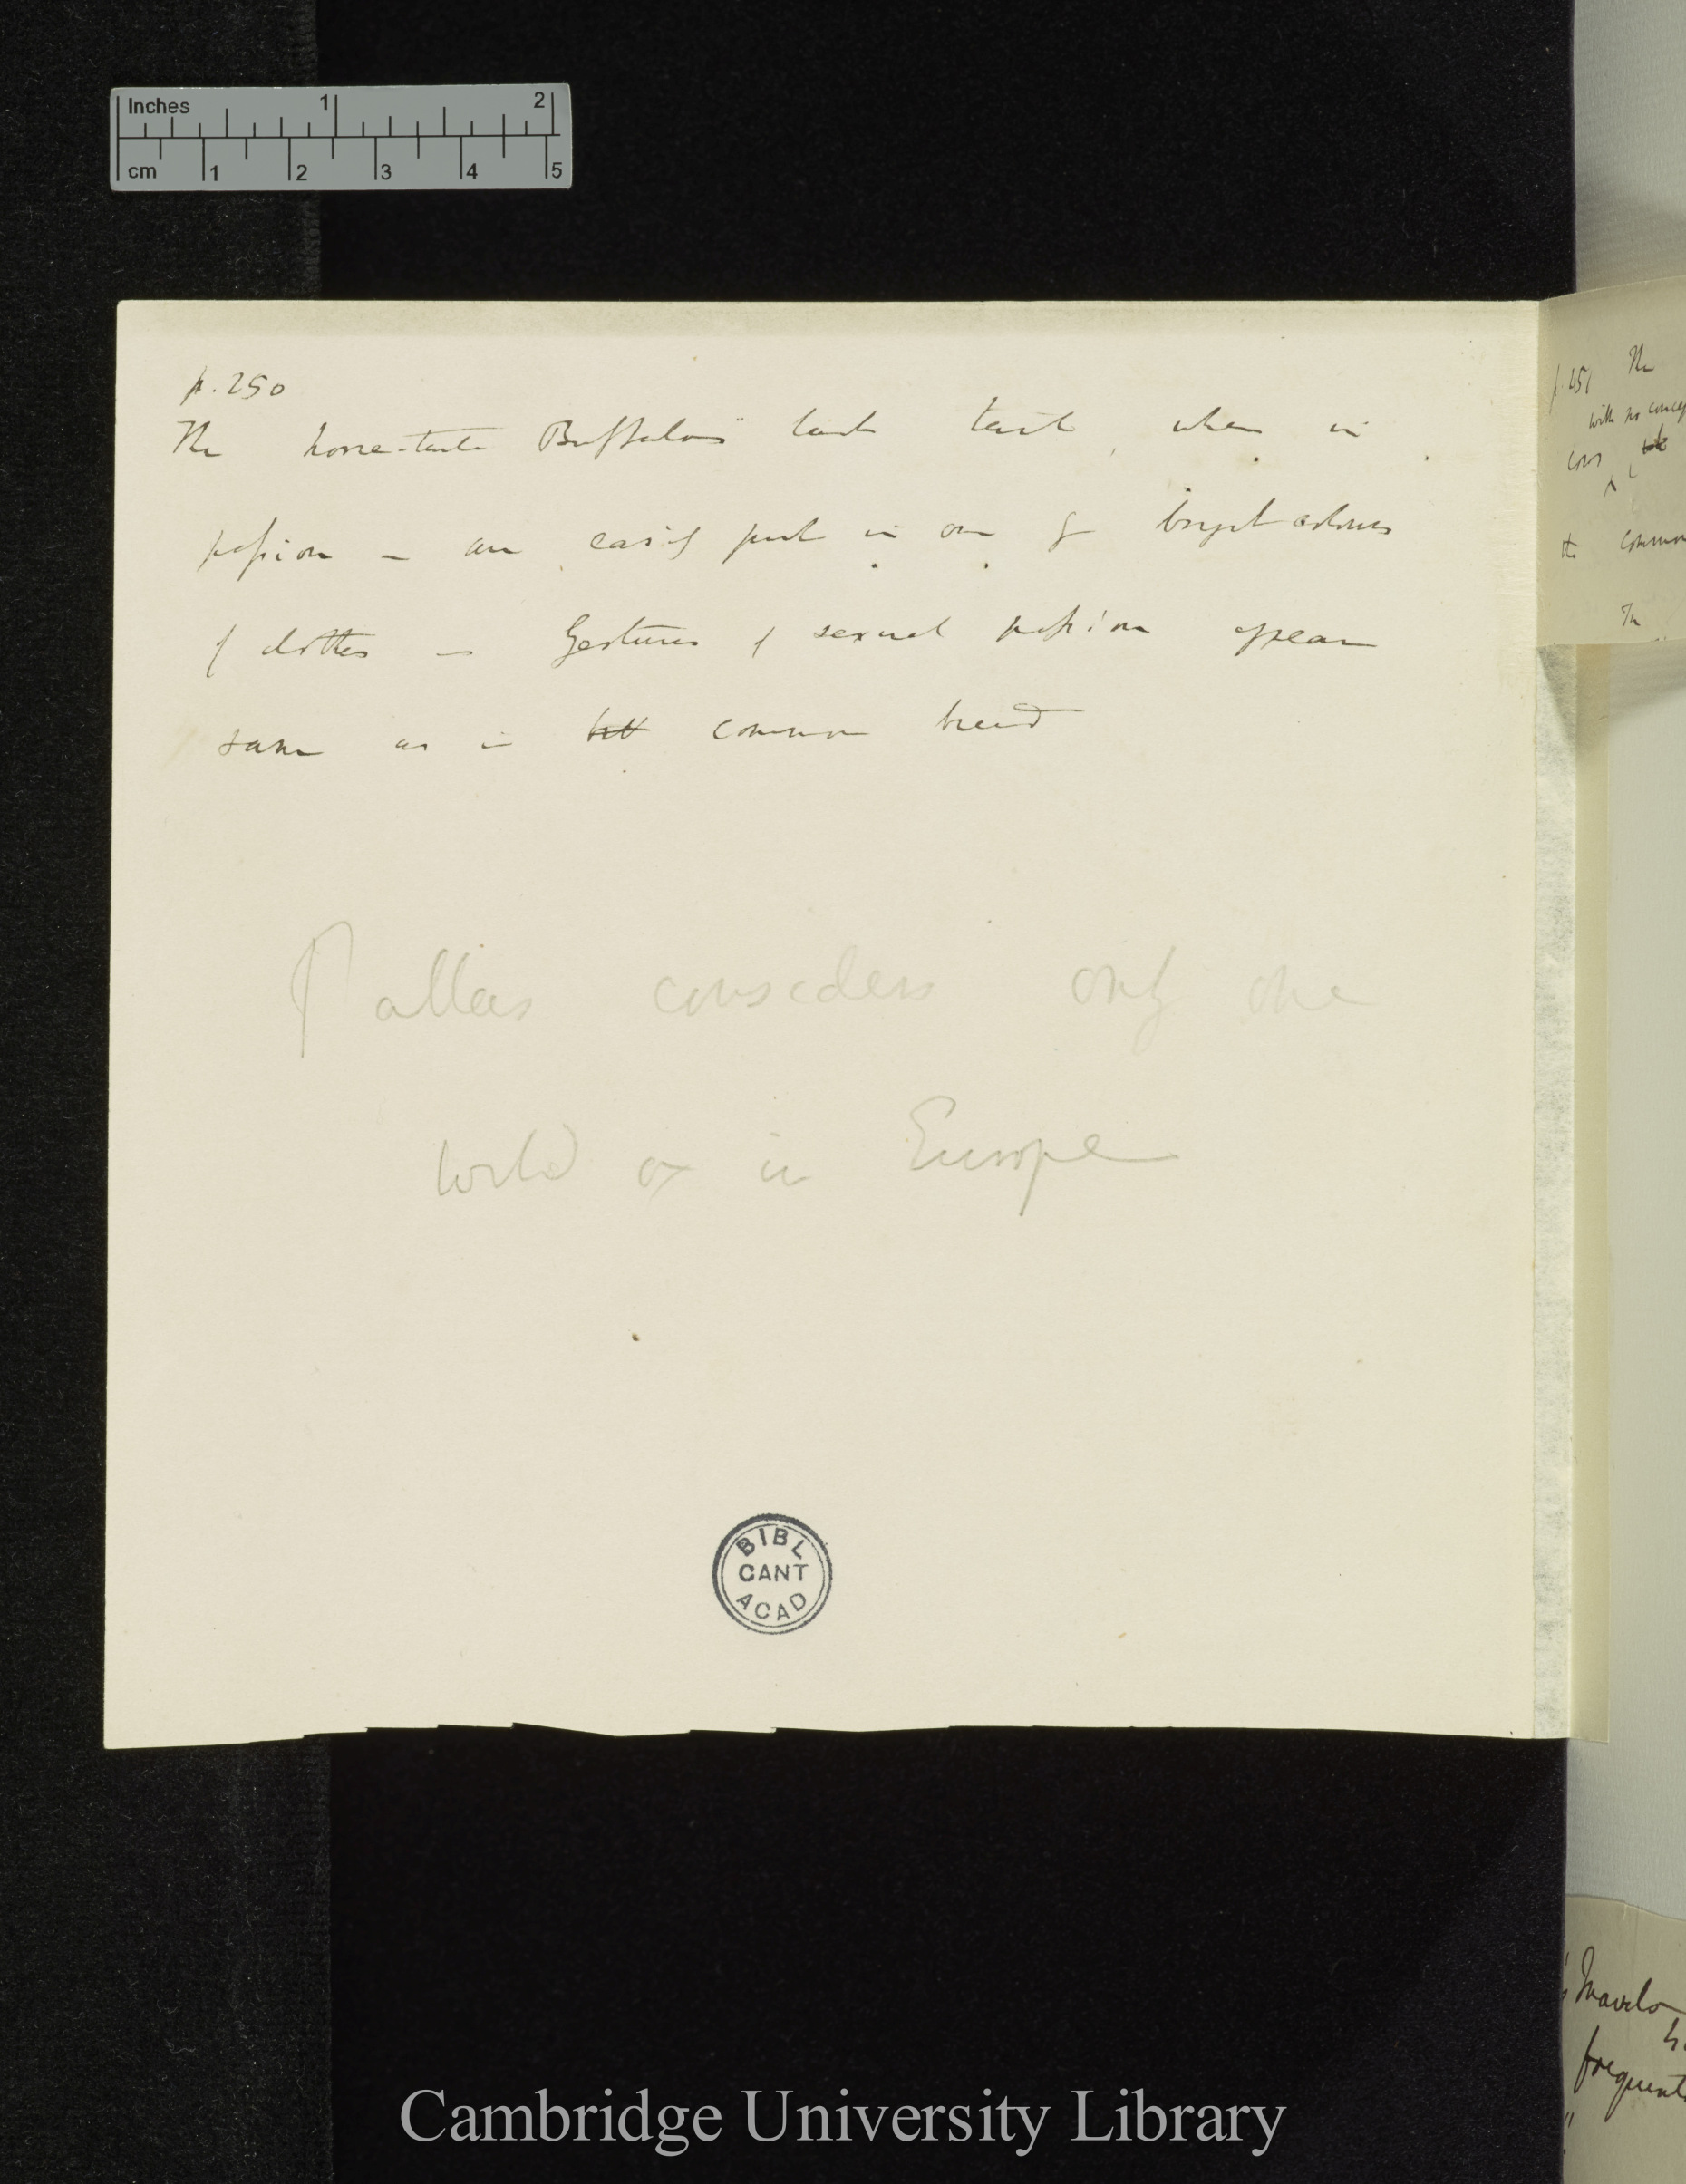 Inches 1 2
cm 1 2 3 4 5
p. 250
The horse-tailed Buffaloes lash tail, when in
passion — are easily put in one by bright colours
of clothes — Gestures of sexual passion appear
same as in common breed
Pallas considers only one
wild ox in Europe
BIBL
CANT
ACAD
p. 251 The
with no
cows
the common
In
Travels
frequent
Cambridge University Library